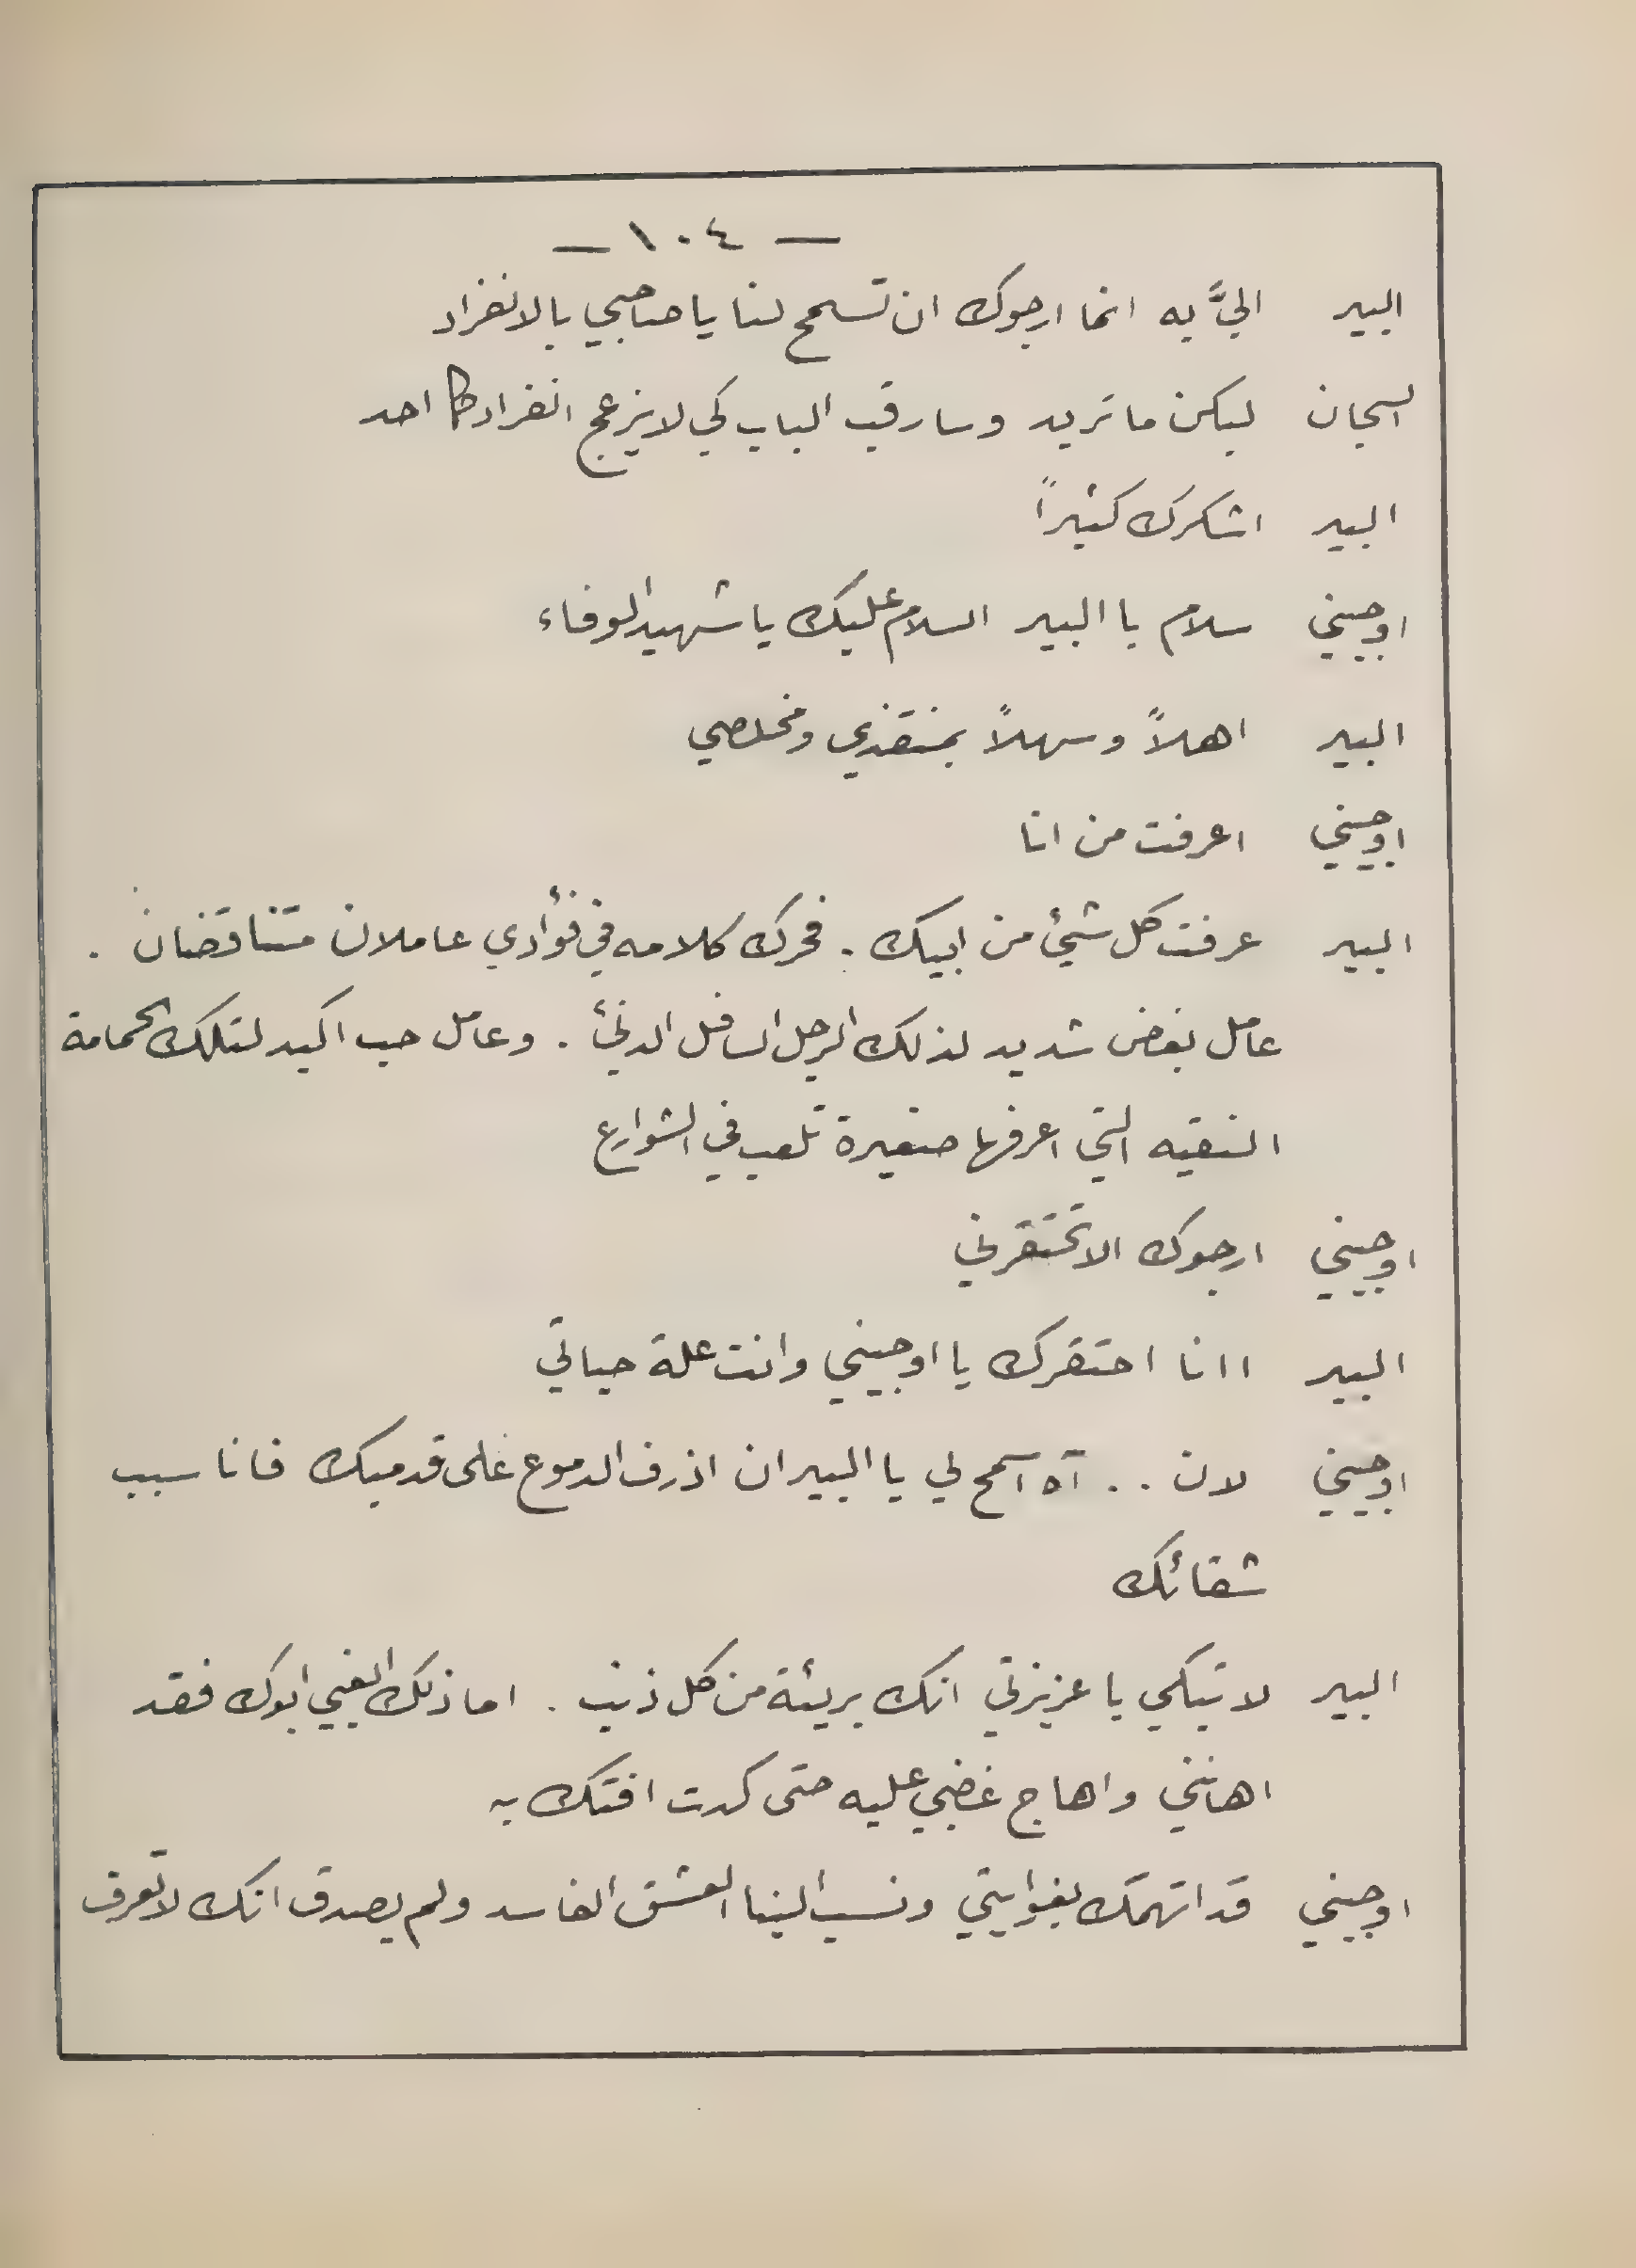 — ١٠٤ —
البير اليَّ به انما ارجوك ان تسمح لنا يا صاحبي بالانفراد
السجان ليكن ما تريد وسارقب الباب كي لا يزعج انفرادكما احد
البير اشكرك كثيراً
اوجيني سلام يا البير السلام عليك يا شهيد الوفاء
البير اهلاً وسهلاً بمنقذي ومخلصي
اوجيني اعرفت من انا
البير عرفت كل شيئ من ابيك . فحرك كلامه في فؤادي عاملان متناقضان .
عامل بغض شديد لذلك الرجل السافل الدنئ . وعامل حب اكيد لتلك الحمامة
النقيه التي اعرفها صغيرة تلعب في الشوارع
اوجيني ارجوك الا تحتقرني
البير اانا احتقرك يا اوجيني وانت علة حياتي
اوجيني لان . . آه اسمح لي يا البير ان اذرف الدموع على قدميك فانا سبب
شقائك
البير لا تبكي يا عزيزتي انك بريئة من كل ذنب . اما ذلك الغبي ابوك فقد
اهانني واهاج غضبي عليه حتى كدت افتك به
اوجيني قد اتهمك بغوايتي ونسب الينا العشق الفاسد ولم يصدق انك لا تعرف